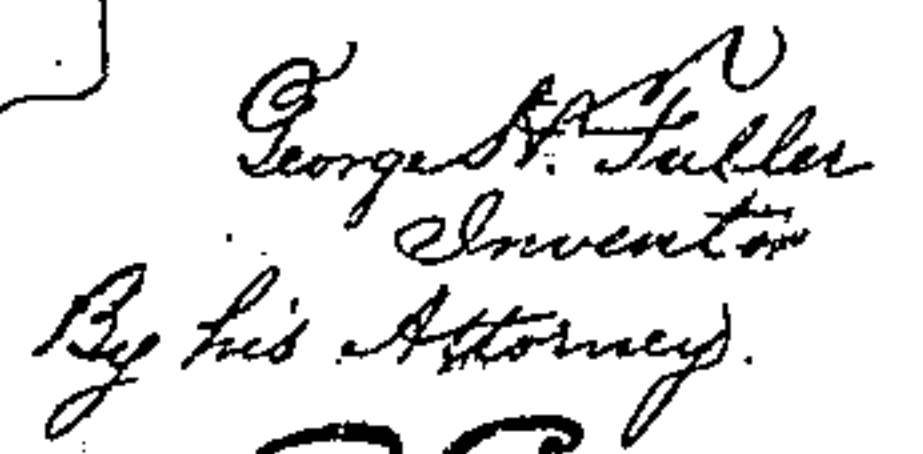 George H. Fuller
Inventor
By his Attorney.